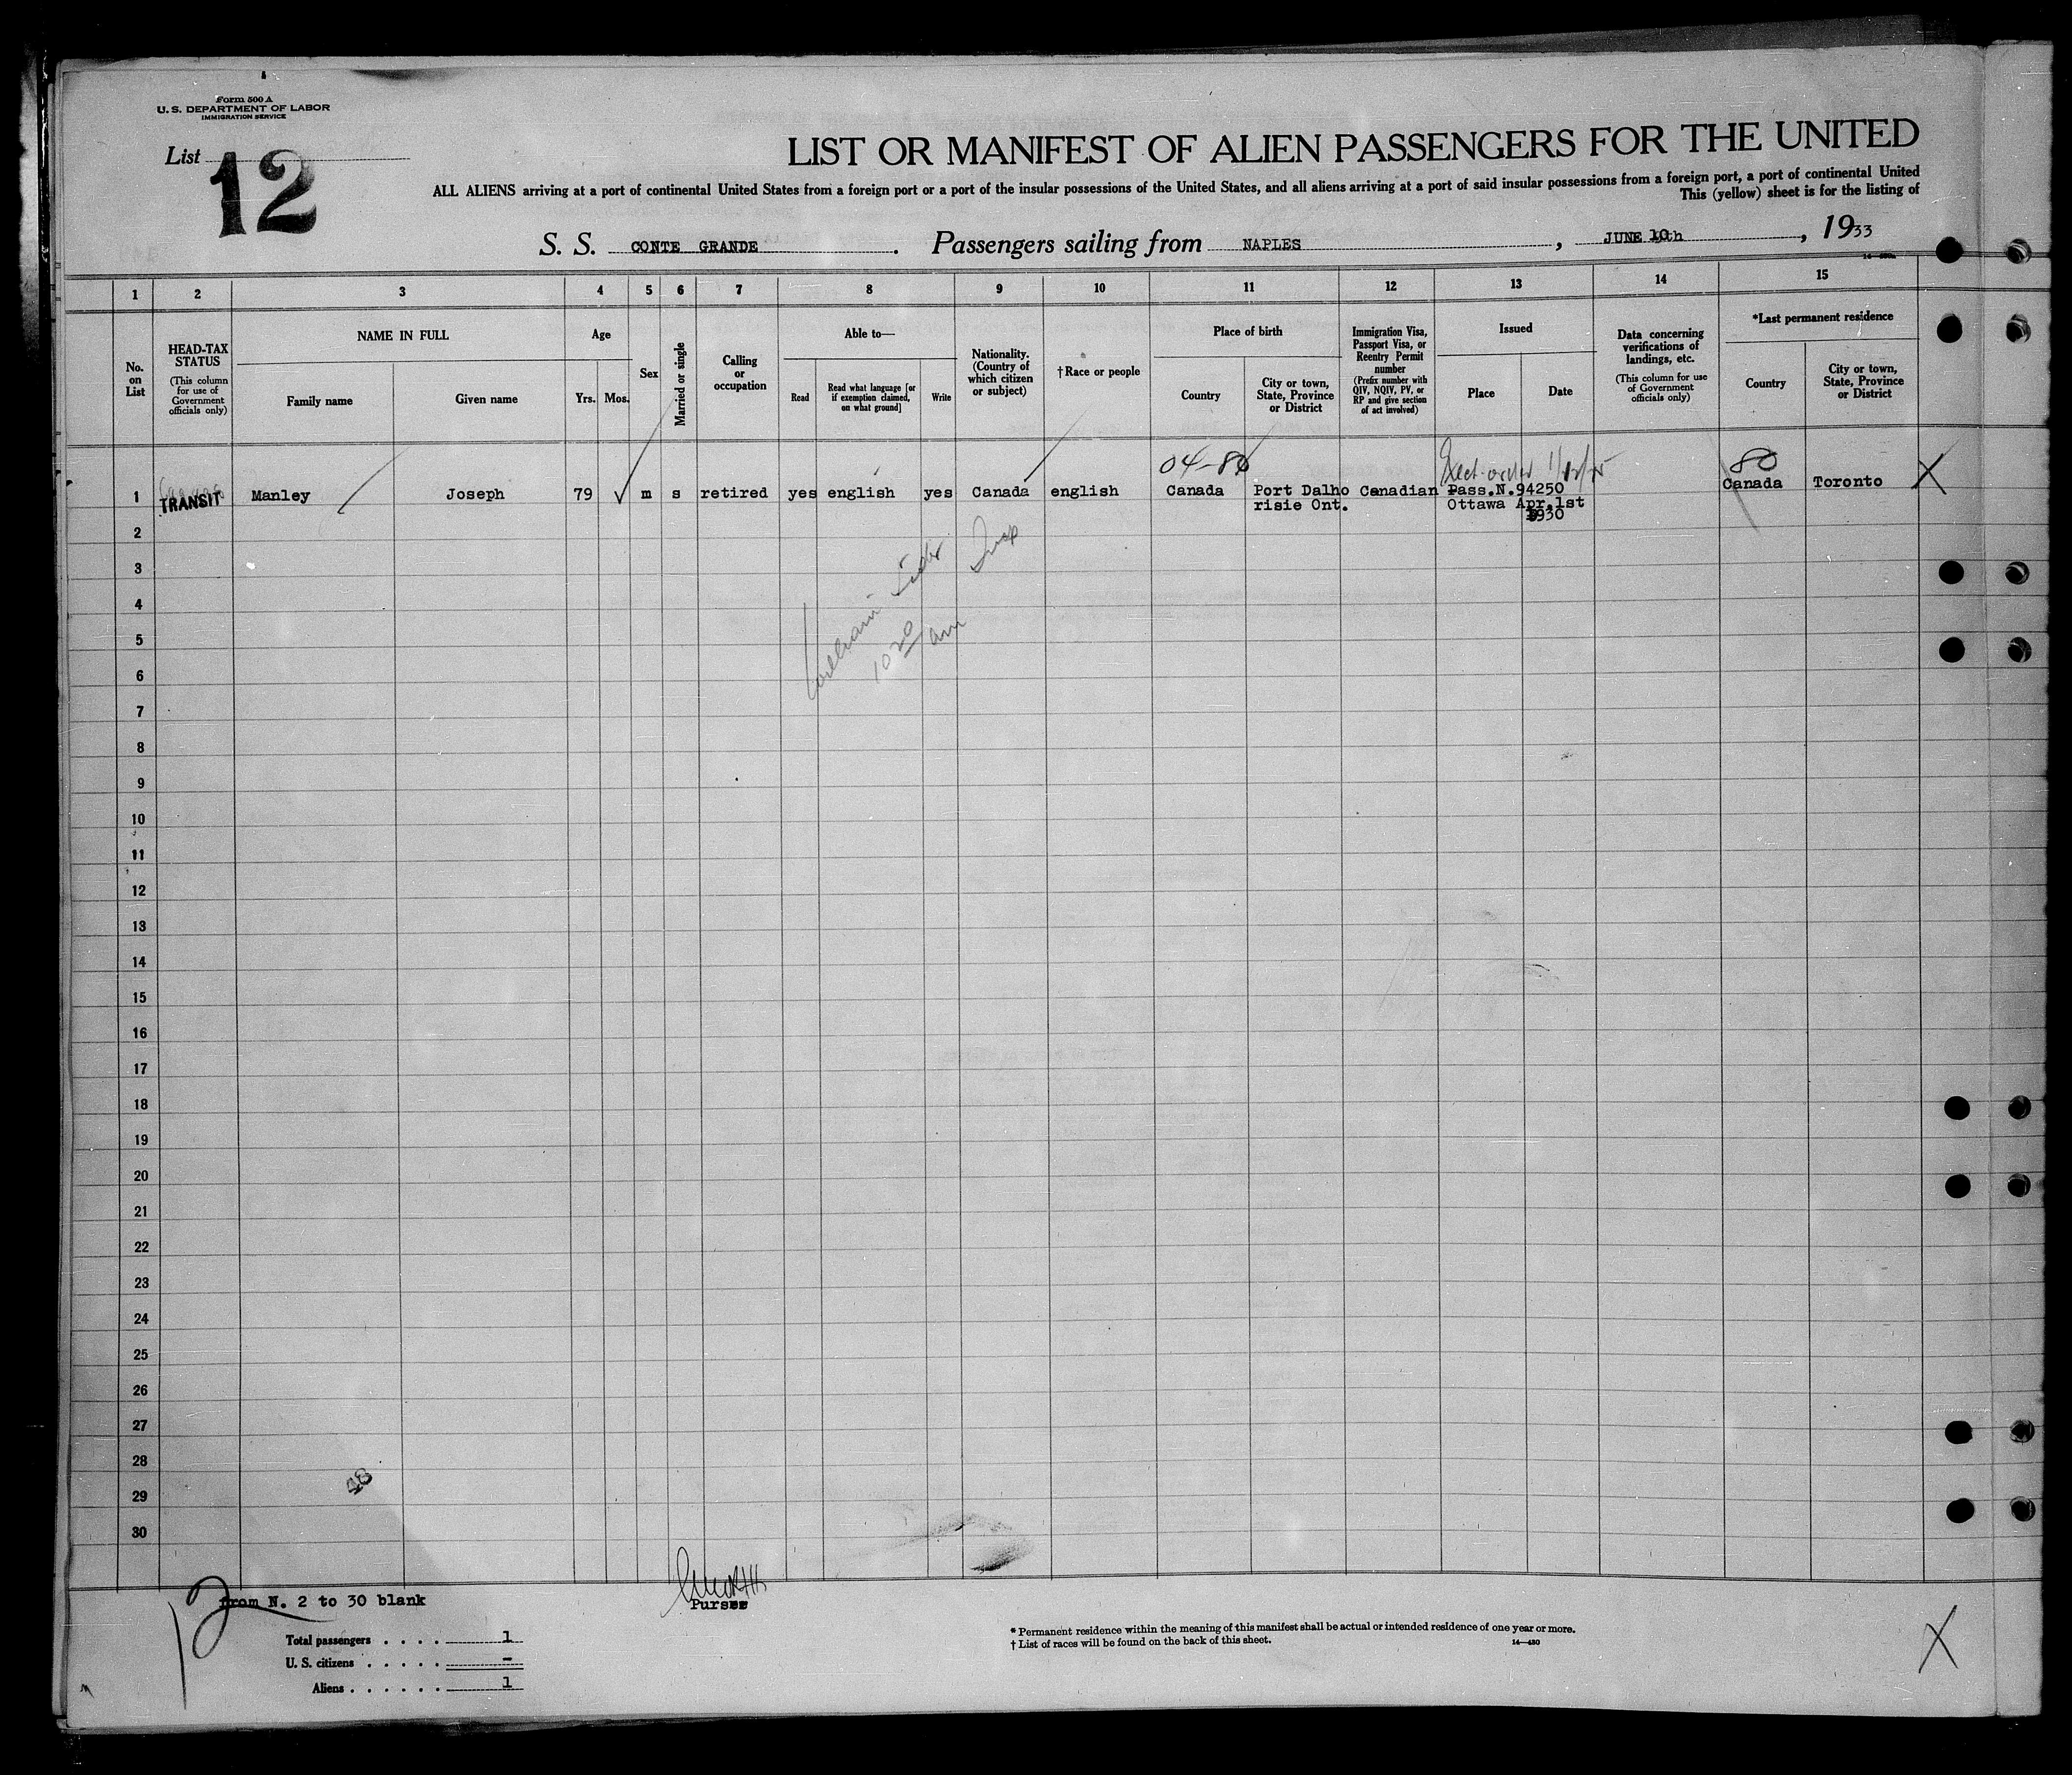 Form 500 A
U. S. DEPARTMENT OF LABOR
IMMIGRATION SERVICE
List 12
LIST OR MANIFEST OF ALIEN PASSENGERS FOR THE UNITED
ALL ALIENS arriving at a port of continental United States from a foreign port or a port of the insular possessions of the United States, and all aliens arriving at a port of said insular possessions from a foreign port, a port of continental United
This (yellow) sheet is for the listing of
S. S. CONTE GRANDE. Passengers sailing from NAPLES, JUNE 10th, 1933
1 2 3 4 5 6 7 8 9 10 11 12 13 14 15
No. on List
HEAD-TAX STATUS
(This column for use of Government officials only)
NAME IN FULL
Family name
Given name
Age
Yrs.
Mos.
Sex
Married or single
Calling or occupation
Able to—
Read
Read what language [or if exemption claimed, on what ground]
Write
Nationality. (Country of which citizen or subject)
†Race or people
Place of birth
Country
City or town, State, Province or District
Immigration Visa, Passport Visa, or Reentry Permit number
(Prefix number with QIV, NQIV, PV, or RP and give section of act involved)
Issued
Place
Date
Data concerning verifications of landings, etc.
(This column for use of Government officials only)
*Last permanent residence
Country
City or town, State, Province or District
04-80
80
1 TRANSIT Manley Joseph 79 ✓ m s retired yes english yes Canada english Canada Port Dalho Canadian Pass.N.94250 Canada Toronto X
risie Ont. Ottawa Apr.1st
1930
2
3
4
5
William
10 20 am
6
7
8
9
10
11
12
13
14
15
16
17
18
19
20
21
22
23
24
25
26
27
28
29
30
12
from N. 2 to 30 blank
Purser
Total passengers . . . . 1
U. S. citizens . . . . . -
Aliens . . . . . . 1
* Permanent residence within the meaning of this manifest shall be actual or intended residence of one year or more.
† List of races will be found on the back of this sheet.
14—430
X